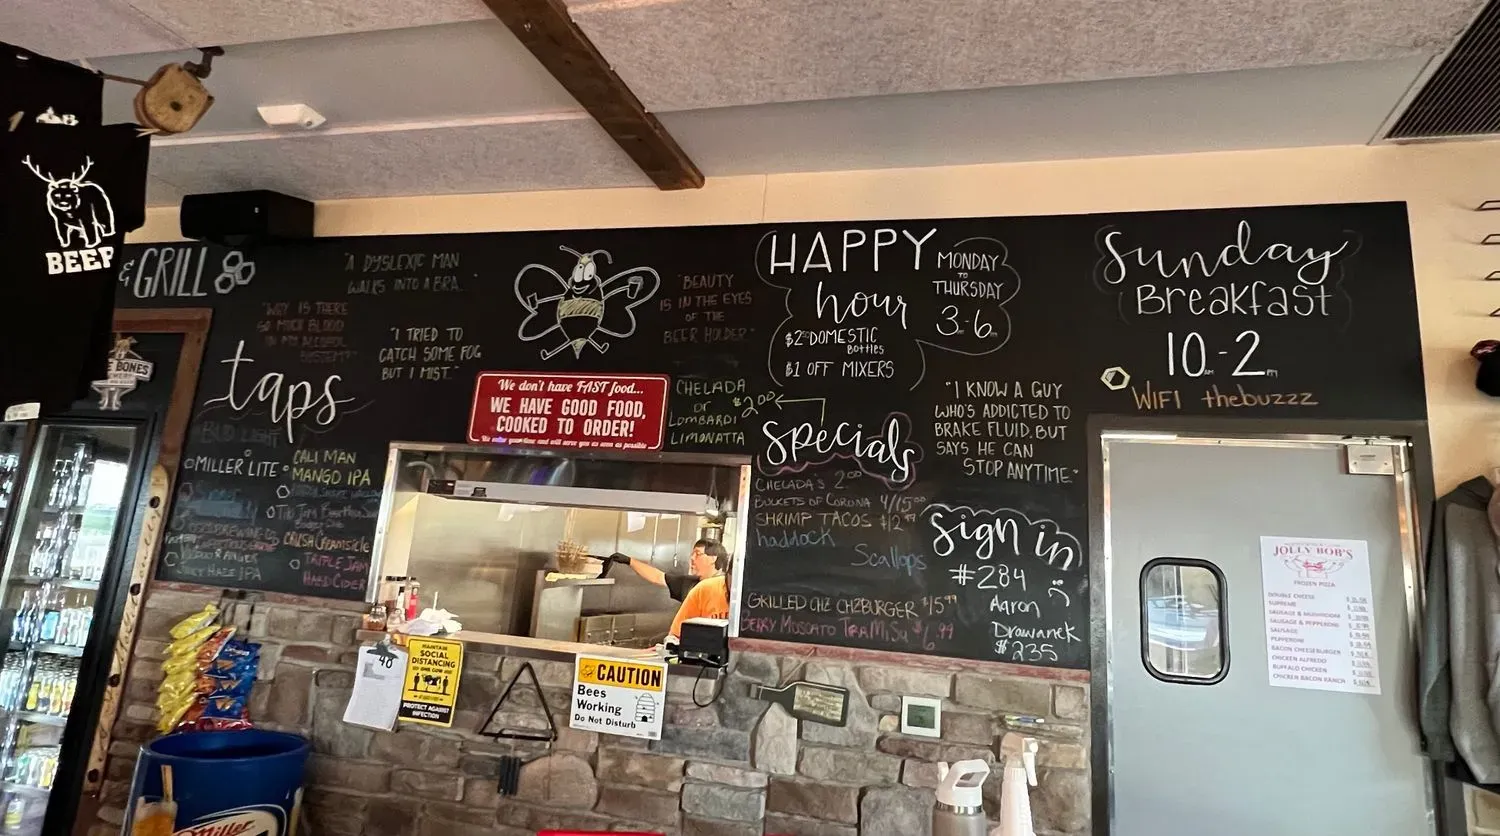 BEER
& GRILL
"A DYSLEXIC MAN
WALKS INTO A BRA..."
"WHY IS THERE
SO MUCH BLOOD
IN MY ALCOHOL
SYSTEM?"
"I TRIED TO
CATCH SOME FOG
BUT I MIST."
"BEAUTY
IS IN THE EYES
OF THE
BEER HOLDER."
taps
BUD LIGHT
MILLER LITE
CALI MAN
MANGO IPA
CRUSH CREAMSICLE
TRIPLE JAM
HARD CIDER
VOODOO RANGER
JUICY HAZE IPA
BONES
We don't have FAST food...
WE HAVE GOOD FOOD,
COOKED TO ORDER!
CHELADA
or
LOMBARDI
LIMONATTA
$2.00
HAPPY
hour
MONDAY
TO
THURSDAY
3-6
$2 DOMESTIC
Bottles
$1 OFF MIXERS
Specials
CHELADA'S 2.00
BUCKETS OF CORONA 4/15.00
SHRIMP TACOS $12.99
haddock
Scallops
GRILLED CHZ CHZBURGER $15.99
BERRY MOSCATO TIRAMISU $6.99
Sunday
Breakfast
10AM-2PM
WIFI thebuzzz
"I KNOW A GUY
WHO'S ADDICTED TO
BRAKE FLUID, BUT
SAYS HE CAN
STOP ANYTIME."
Sign in
#284
Aaron
Drawanek
$235
48
MAINTAIN
SOCIAL
DISTANCING
PROTECT AGAINST
INFECTION
CAUTION
Bees
Working
Do Not Disturb
JOLLY BOB'S
FROZEN PIZZA
DOUBLE CHEESE
SUPREME
SAUSAGE & MUSHROOM
SAUSAGE & PEPPERONI
SAUSAGE
PEPPERONI
BACON CHEESEBURGER
CHICKEN ALFREDO
BUFFALO CHICKEN
CHICKEN BACON RANCH
Miller